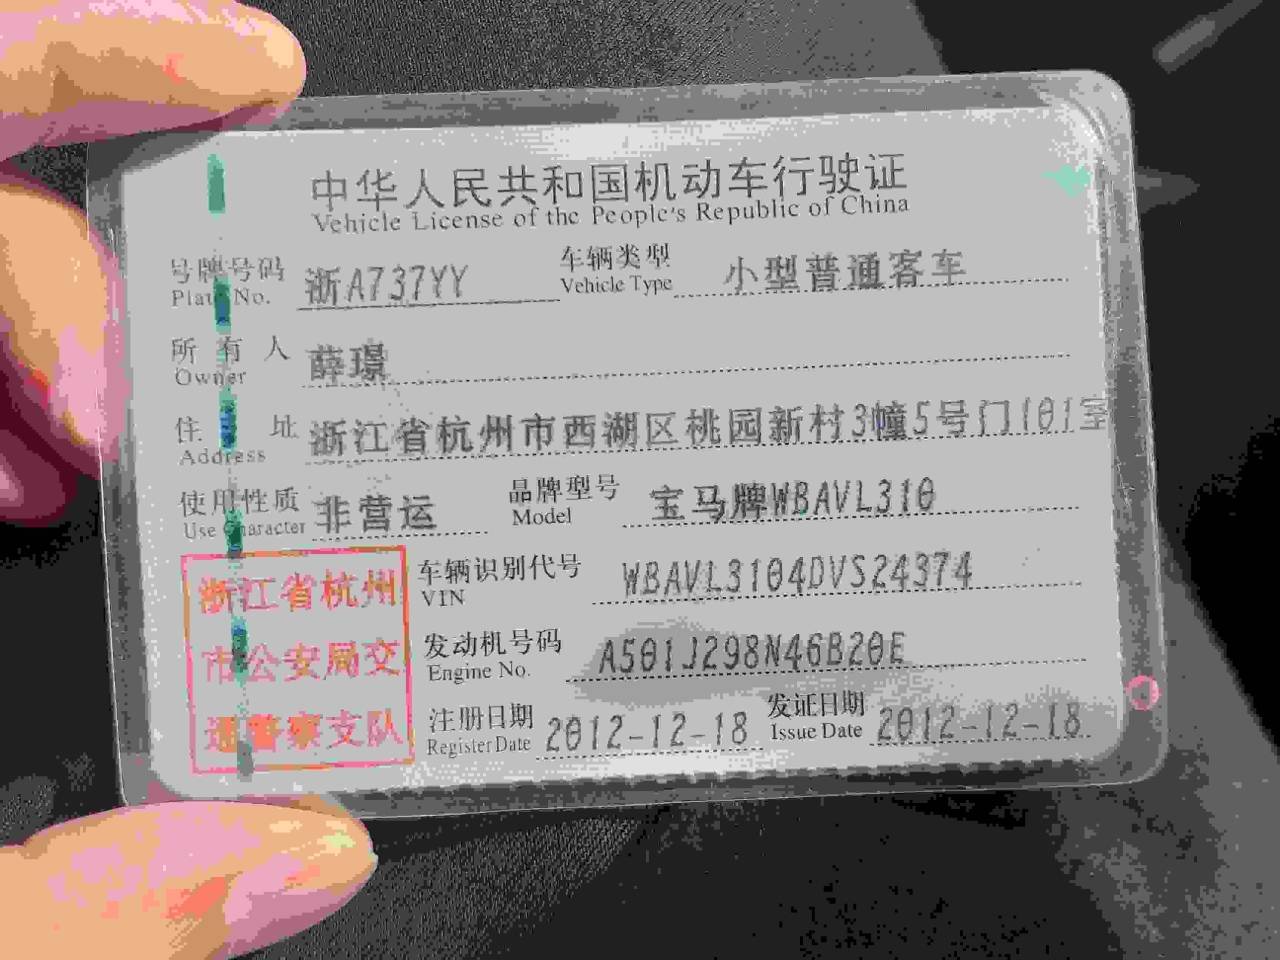 中华人民共和国机动车行驶证
Vehicle License of the People's Republic of China
号牌号码 浙A737YY 车辆类型 小型普通客车
Plate No. Vehicle Type
所有人 薛璟
Owner
住址 浙江省杭州市西湖区桃园新村3幢5号门101室
Address
使用性质 非营运 品牌型号 宝马牌WBAVL310
Use Character Model
浙江省杭州市公安局交通警察支队
车辆识别代号 WBAVL3104DVS24374
VIN
发动机号码 A501J298N46B20E
Engine No.
注册日期 2012-12-18 发证日期 2012-12-18
Register Date Issue Date